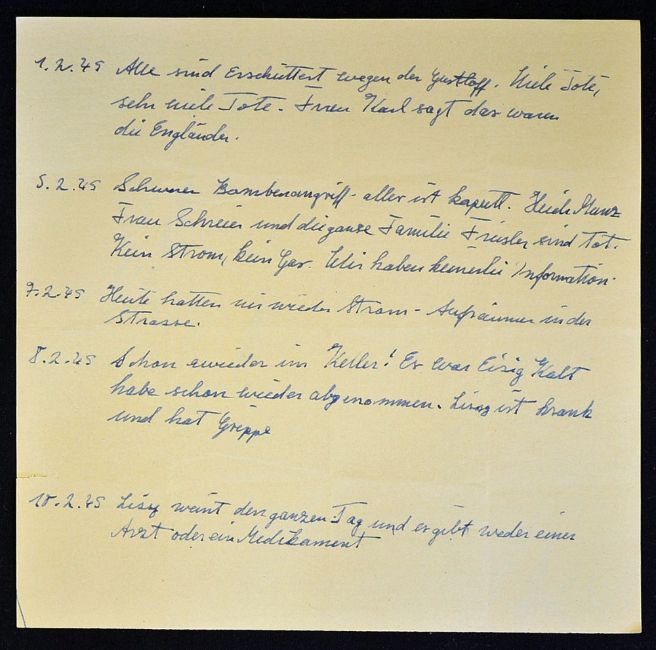 1.2.45 Alle sind Erschüttert wegen der Gustloff. Viele Tote,
sehr viele Tote. Frau Karl sagt das waren
die Engländer.
5.2.45 Schwerer Bombenangriff - alles ist kaputt. Heidi Manz
Frau Schreier und die ganze Familie Freisler sind Tot.
Kein Strom, kein Gas. Wir haben keinerlei Information.
7.2.45 Heute hatten wir wieder Strom - Aufräumen in der
Strasse.
8.2.45 Schon wieder im Keller! Es war Eisig Kalt
habe schon wieder abgenommen. Lissy ist krank
und hat Grippe
10.2.45 Lissy weint den ganzen Tag und es gibt weder einen
Arzt oder ein Medikament